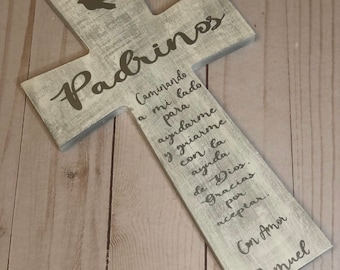 Padrinos
Caminando
a mi lado
para
ayudarme
y guiarme
con la
ayuda
de Dios.
Gracias
por
aceptar.
Con Amor
muel